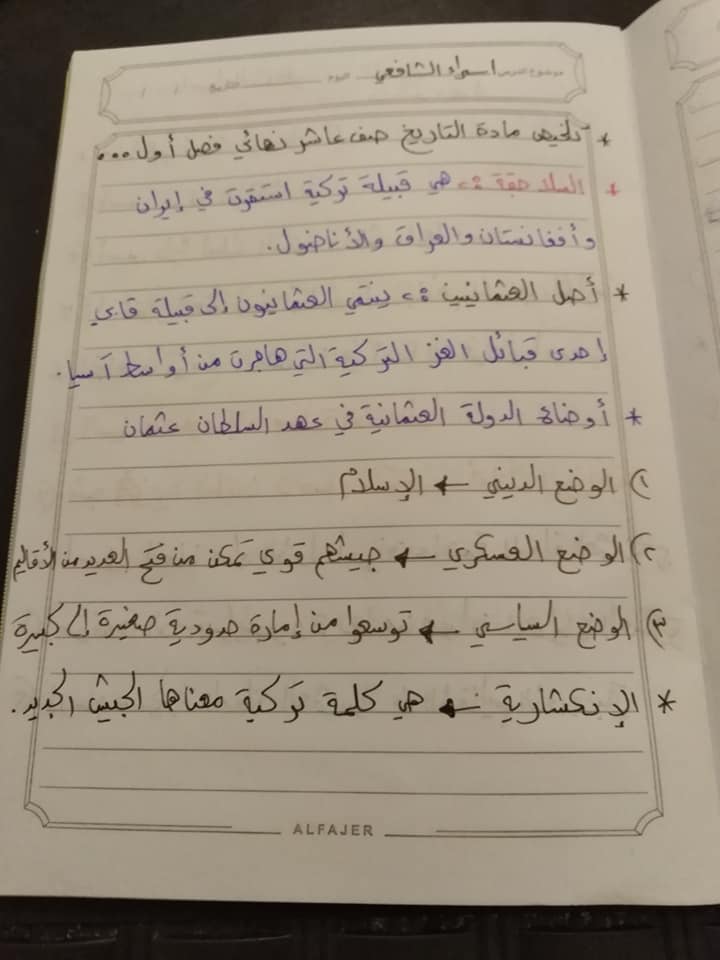 موضوع الدرس اسراء الشافعي اليوم التاريخ / /
* تلخيص مادة التاريخ صف عاشر نهائي فصل أول ...
* السلاجقة :- هي قبيلة تركية استقرت في إيران
وأفغانستان والعراق والأناضول.
* أصل العثمانيين :- ينتمي العثمانيون إلى قبيلة قاي
إحدى قبائل الغز التركية التي هاجرت من أواسط آسيا.
* أوضاع الدولة العثمانية في عهد السلطان عثمان
١) الوضع الديني ← الإسلام
٢) الوضع العسكري ← جيشهم قوي تمكن من فتح العديد من الأقاليم
٣) الوضع السياسي ← توسعوا من إمارة حدودية صغيرة إلى كبيرة
* الإنكشارية ← هي كلمة تركية معناها الجيش الجديد.
ALFAJER